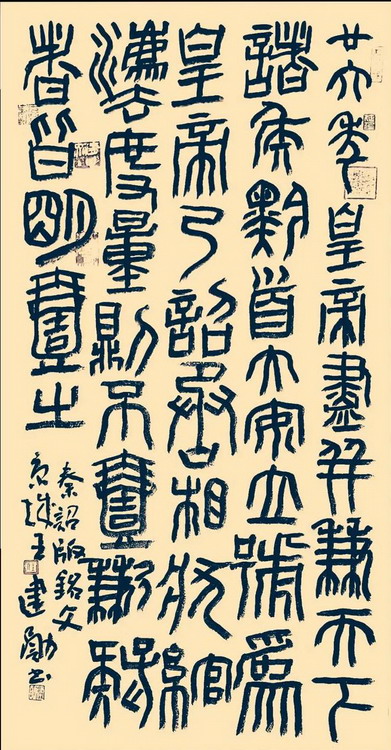 廿六年皇帝盡并兼天下
諸侯黔首大安立號為
皇帝乃詔丞相狀綰
灋度量則不壹歉疑
者皆明壹之
秦詔版銘文
王建勛书